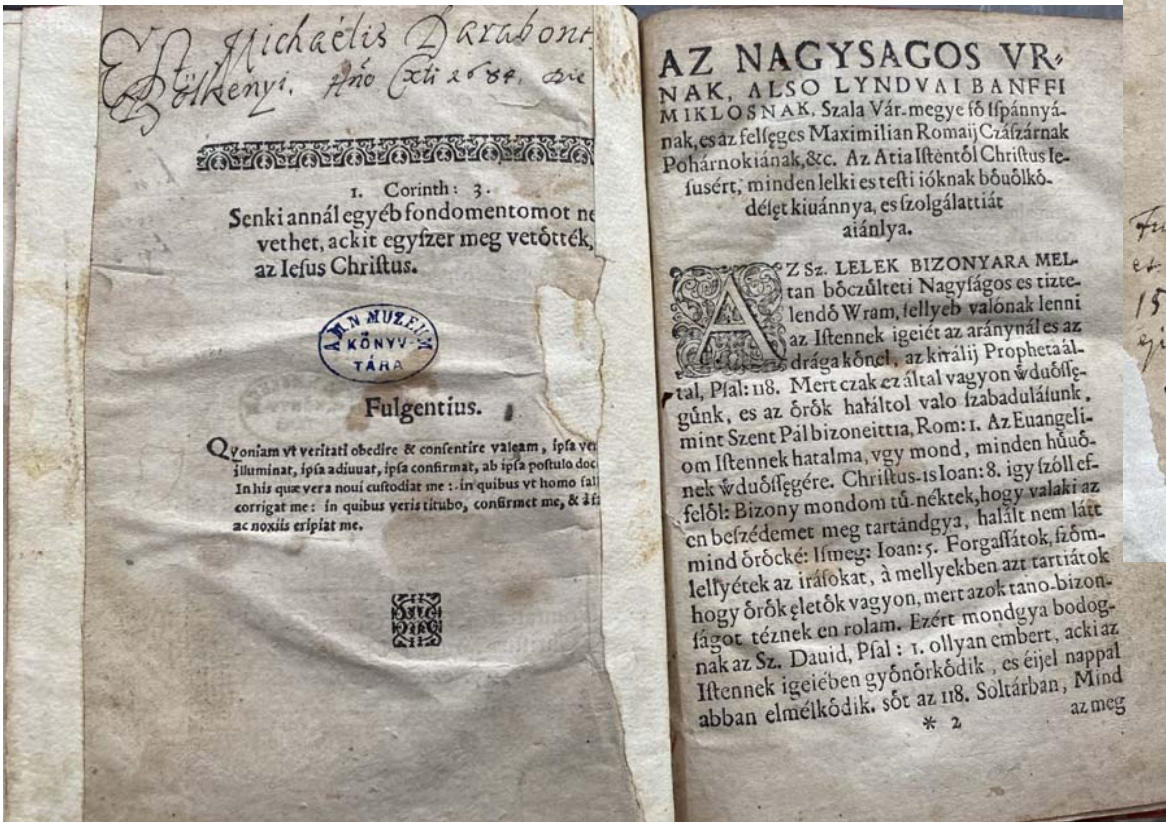 Michaélis Darabont
Bölkenyi. Año
1. Corinth: 3.
Senki annál egyéb fondomentomot ne
vethet, ackit egyſzer meg veto̊tték,
az Ieſus Chriſtus.
MUZEUM
KÖNYV-
TÁRA
Fulgentius.
QVoniam vt veritati obedire & conſentire valeam, ipſa
illuminat, ipſa adiuuat, ipſa confirmat, ab ipſa poſtulo doc
In his quæ vera noui cuſtodiat me: in quibus vt homo fal
corrigat me: in quibus veris titubo, confirmet me, & à
ac noxiis eripiat me.
AZ NAGYSAGOS VR-
NAK, ALSO LYNDVAI BANFFI
MIKLOSNAK. Szala Vár-megye fo̊ Iſpánnyá-
nak, es az felſęges Maximilian Romaij Czáſzárnak
Pohárnokiának, &c. Az Atia Iſtento̊l Chriſtus Ie-
ſusért, minden lelki es teſti ióknak bo̊uo̊lko̊-
déſęt kiuánnya, es ſzolgálattiát
aiánlya.
AZ Sz. LELEK BIZONYARA MEL-
tan bo̊czu̇lteti Nagyſágos es tizte-
lendo̊ Wram, fellyeb valónak lenni
az Iſtennek igeiét az aránynál es az
drága ko̊nel, az királij Propheta ál-
tal, Pſal: 118. Mert czak ez által vagyon ẘduo̊ſſę-
gu̇nk, es az o̊ro̊k haláltol valo ſzabaduláſunk,
mint Szent Pál bizoneittia, Rom: 1. Az Euangeli-
om Iſtennek hatalma, vgy mond, minden hu̇uo̊-
nek ẘduo̊ſſęgére. Chriſtus-is Ioan: 8. igy ſzóll eſ-
felo̊l: Bizony mondom tu̇-néktek, hogy valaki az
en beſzédemet meg tartándgya, halált nem látt
mind o̊ro̊cké: Iſmeg: Ioan: 5. Forgaſſátok, ſzo̊m-
lellyétek az iráſokat, à mellyekben azt tartiátok
hogy o̊ro̊k ęleto̊k vagyon, mert azok tano-bizon-
ſágot téznek en rolam. Ezért mondgya bodog-
nak az Sz. Dauid, Pſal: 1. ollyan embert, acki az
Iſtennek igeiében gyo̊no̊rko̊dik, es éijel nappal
abban elmélko̊dik. so̊t az 118. Soltárban, Mind
* 2 az meg